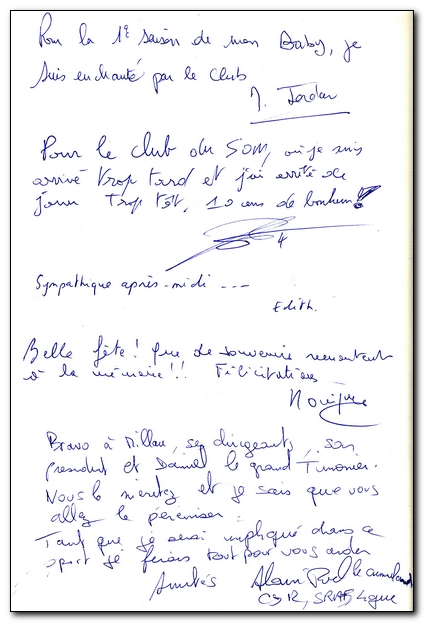 Pour la 1è saison de mon Baby, je
suis enchanté par le club
J. Jordan
Pour le club du SOM, où je suis
arrivé trop tard et j'ai arrêté de
jouer trop tôt, 10 ans de bonheur!
Sympathique après-midi ---
Edith.
Belle fête! que de souvenirs remontent
à la mémoire!! Félicitations
Monique
Bravo à Millau, ses dirigeants, son
président et Daniel le grand Timonier.
Vous le méritez et je sais que vous
allez le pérenniser.
Tant que je serai impliqué dans ce
sport je ferais tout pour vous aider
Amitiés Alain
CSR, Ligue